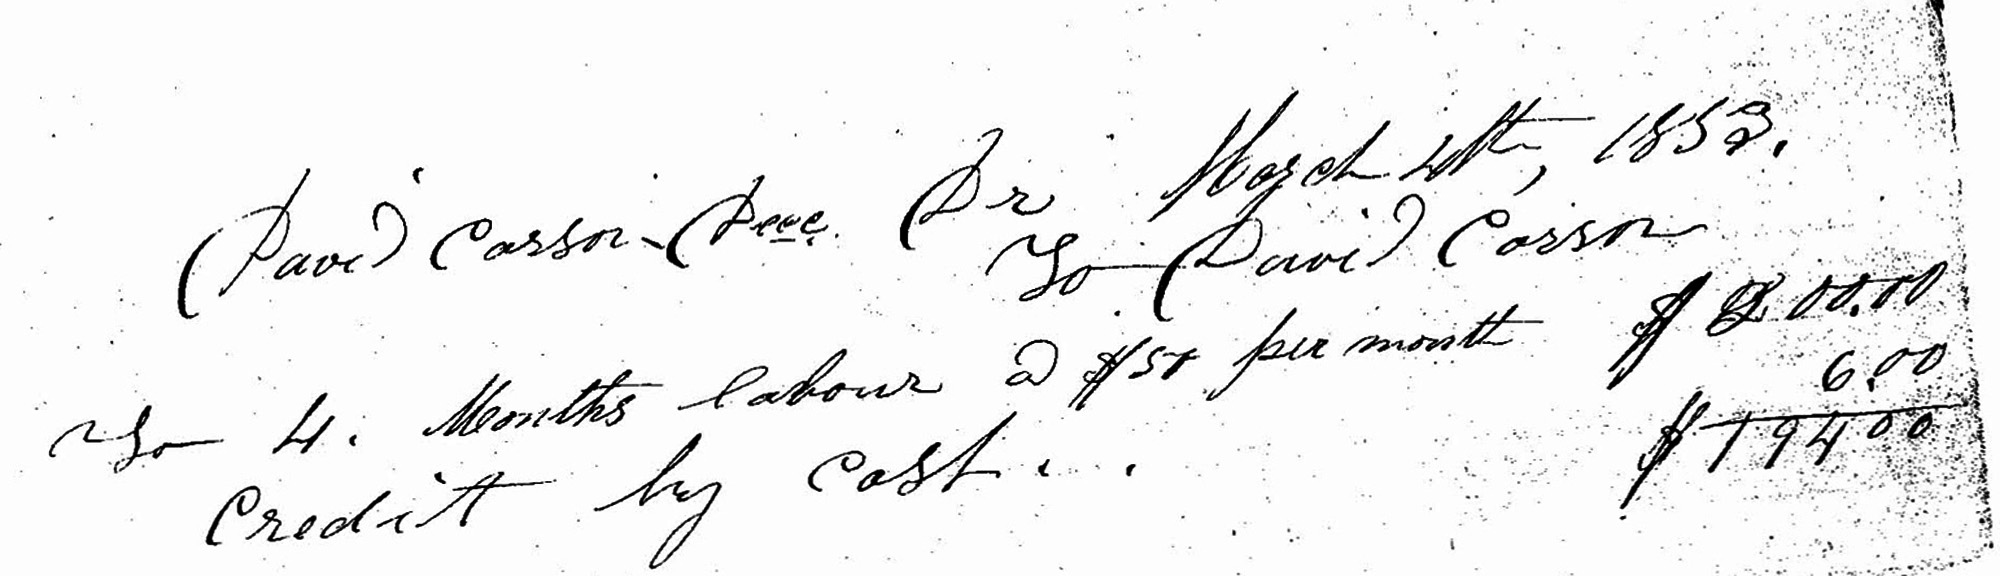 March 4th, 1853.
David Carson Decc. Dr
To David Carson
To 4. Months labour @ $50 per month $200.00
Credit by cash... 6.00
$194.00